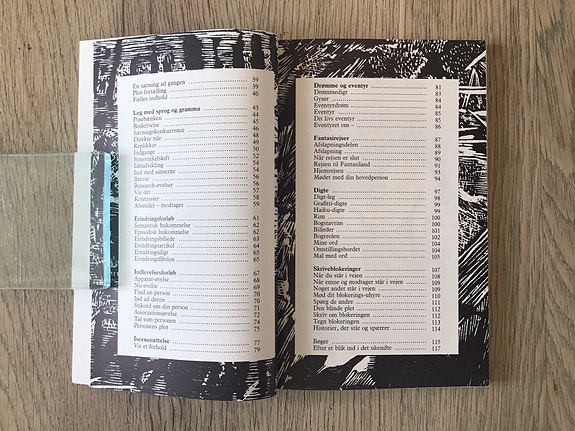 En sætning ad gangen 39
Plot-fortælling 39
Fælles indhold 40
Leg med sprog og gramma 43
Pinebænken 44
Beskrivelse 45
Sætningskonkurrence 46
Direkte tale 48
Replikker 49
Indgange 50
Synsvinkelskift 51
Idéudvikling 54
Ind med sanserne 54
Brevet 55
Research-øvelser 56
Vis det 57
Kontraster 58
Afsender – modtager 59
Erindringsforløb 61
Semantisk hukommelse 62
Episodisk hukommelse 62
Erindringsbillede 63
Erindringsartikel 64
Erindringsdigt 65
Erindringsfiktion 65
Indlevelsesforløb 67
Apparat-øvelse 68
Nu-øvelse 68
Find en person 70
Ind ad døren 70
Stikord om din person 71
Associationsøvelse 72
Tal som personen 74
Personens plot 75
Iscenesættelse 77
Vis et forhold 79
Drømme og eventyr 81
Drømmedigt 83
Gyser 84
Eventyrdrøm 84
Dit livs eventyr 85
Eventyret om – 86
Fantasirejser 87
Afslapningsdelen 88
Afslapning 89
Når rejsen er slut 90
Rejsen til Fantasiland 91
Hjemrejsen 93
Mødet med din hovedperson 94
Digte 97
Digt-leg 98
Grafitti-digte 99
Haiku-digte 100
Rim 100
Bogstavrim 100
Billeder 101
Bogreolen 102
Mine ord 104
Omstillingsbordet 104
Mal med ord 105
Skriveblokeringer 107
Når du står i vejen 108
Når emne og modtager står i vejen 108
Noget andet står i vejen 109
Mød dit blokerings-uhyre 110
Spørg de andre 111
Den blinde plet 111
Skriv om blokeringen 112
Tegn blokeringen 113
Historier, der står og spærrer 114
Bøger 115
Efter et blik ind i det ukendte 117